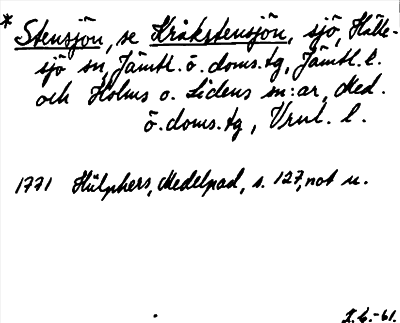 * Stensjön, se Kråkstensjön, sjö, Hälle-
sjö sn, Jämtl. ö. doms.tg, Jämtl. l.
och Holms o. Lidens sn:ar, Med.
ö. doms.tg, Vrnl. l.
1771 Hülphers, Medelpad, s. 127, not u.